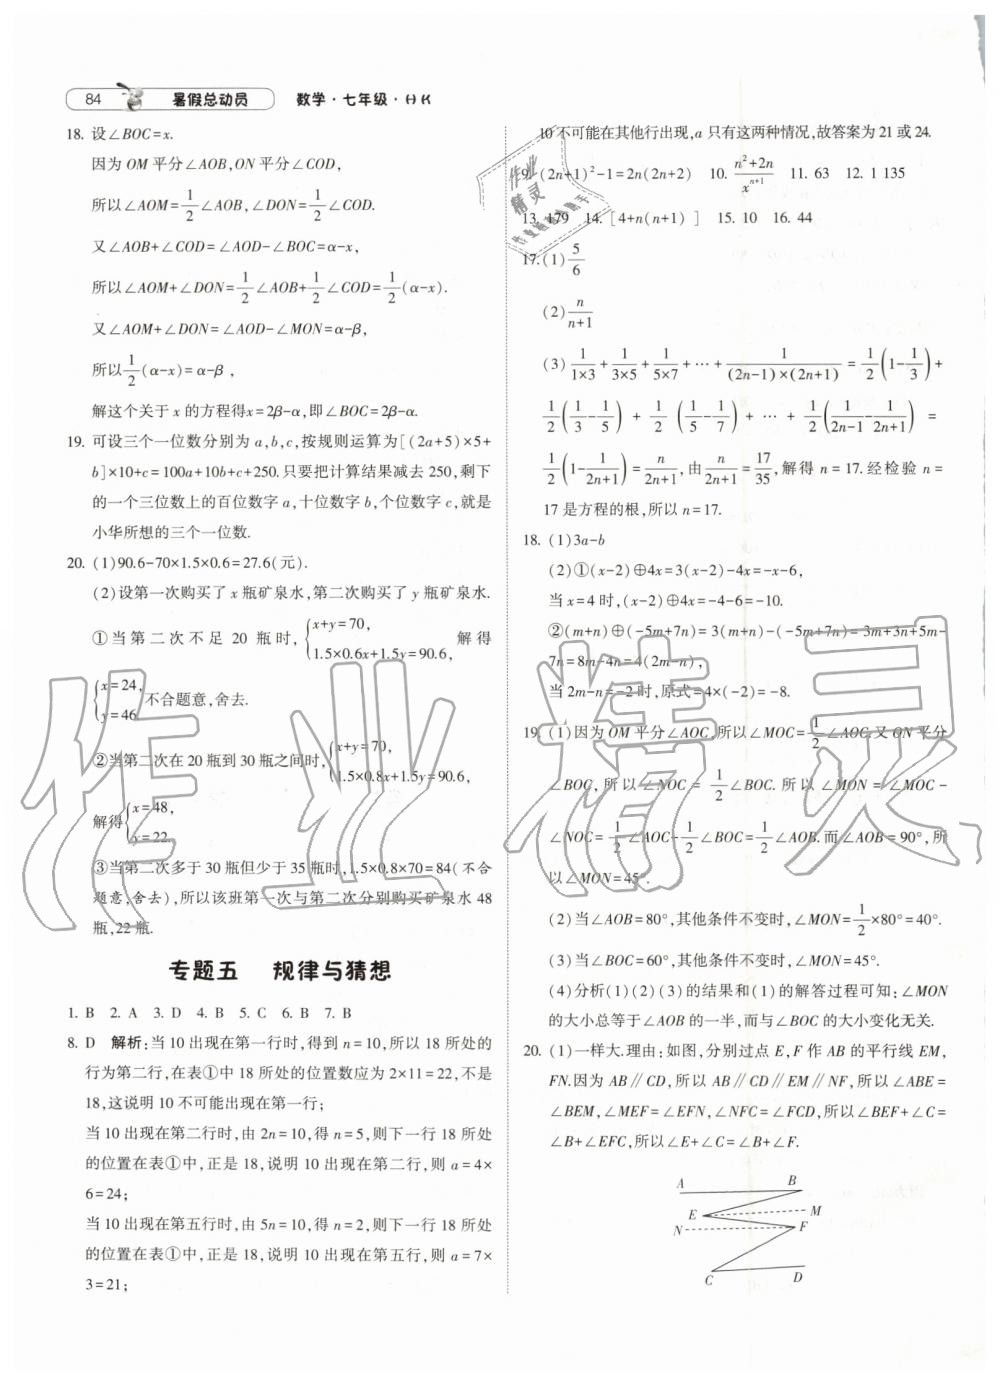 84 暑假总动员 数学·七年级·HK
18. 设∠BOC=x.
因为 OM 平分∠AOB,ON 平分∠COD,
所以∠AOM=1/2∠AOB,∠DON=1/2∠COD.
又∠AOB+∠COD=∠AOD-∠BOC=α-x,
所以∠AOM+∠DON=1/2∠AOB+1/2∠COD=1/2(α-x).
又∠AOM+∠DON=∠AOD-∠MON=α-β,
所以1/2(α-x)=α-β,
解这个关于 x 的方程得x=2β-α,即∠BOC=2β-α.
19. 可设三个一位数分别为 a,b,c,按规则运算为[(2a+5)×5+
b]×10+c=100a+10b+c+250.只要把计算结果减去 250,剩下
的一个三位数上的百位数字 a,十位数字 b,个位数字 c,就是
小华所想的三个一位数.
20. (1)90.6-70×1.5×0.6=27.6(元).
(2)设第一次购买了 x 瓶矿泉水,第二次购买了 y 瓶矿泉水.
①当第二次不足 20 瓶时,{x+y=70, 1.5×0.6x+1.5y=90.6, 解得
{x=24, y=46 不合题意,舍去.
②当第二次在 20 瓶到 30 瓶之间时,{x+y=70, 1.5×0.8x+1.5y=90.6,
解得{x=48, y=22.
③当第二次多于 30 瓶但少于 35 瓶时,1.5×0.8×70=84(不合
题意,舍去),所以该班第一次与第二次分别购买矿泉水 48
瓶,22 瓶.
专题五 规律与猜想
1. B 2. A 3. D 4. B 5. C 6. B 7. B
8. D 解析:当 10 出现在第一行时,得到 n=10,所以 18 所处的
行为第二行,在表①中 18 所处的位置数应为 2×11=22,不是
18,这说明 10 不可能出现在第一行;
当 10 出现在第二行时,由 2n=10,得 n=5,则下一行 18 所处
的位置在表①中,正是 18,说明 10 出现在第二行,则 a=4×
6=24;
当 10 出现在第五行时,由 5n=10,得 n=2,则下一行 18 所处
的位置在表①中,正是 18,说明 10 出现在第五行,则 a=7×
3=21;
10 不可能在其他行出现,a 只有这两种情况,故答案为 21 或 24.
9. (2n+1)²-1=2n(2n+2) 10. (n²+2n)/x^(n+1) 11. 63 12. 1 135
13. 179 14. [4+n(n+1)] 15. 10 16. 44
17. (1)5/6
(2)n/(n+1)
(3)1/(1×3)+1/(3×5)+1/(5×7)+…+1/((2n-1)×(2n+1))=1/2(1-1/3)+
1/2(1/3-1/5)+1/2(1/5-1/7)+…+1/2(1/(2n-1)-1/(2n+1))=
1/2(1-1/(2n+1))=n/(2n+1),由n/(2n+1)=17/35,解得 n=17.经检验 n=
17 是方程的根,所以 n=17.
18. (1)3a-b
(2)①(x-2)⊕4x=3(x-2)-4x=-x-6,
当 x=4 时,(x-2)⊕4x=-4-6=-10.
②(m+n)⊕(-5m+7n)=3(m+n)-(-5m+7n)=3m+3n+5m-
7n=8m-4n=4(2m-n),
当 2m-n=-2 时,原式=4×(-2)=-8.
19. (1)因为 OM 平分∠AOC,所以∠MOC=1/2∠AOC.又 ON 平分
∠BOC,所以∠NOC=1/2∠BOC.所以∠MON=∠MOC-
∠NOC=1/2∠AOC-1/2∠BOC=1/2∠AOB.而∠AOB=90°,所
以∠MON=45°.
(2)当∠AOB=80°,其他条件不变时,∠MON=1/2×80°=40°.
(3)当∠BOC=60°,其他条件不变时,∠MON=45°.
(4)分析(1)(2)(3)的结果和(1)的解答过程可知:∠MON
的大小总等于∠AOB 的一半,而与∠BOC 的大小变化无关.
20. (1)一样大.理由:如图,分别过点 E,F 作 AB 的平行线 EM,
FN.因为 AB∥CD,所以 AB∥CD∥EM∥NF,所以∠ABE=
∠BEM,∠MEF=∠EFN,∠NFC=∠FCD,所以∠BEF+∠C=
∠B+∠EFC,所以∠E+∠C=∠B+∠F.
A B
E M
N F
C D
作业精灵
作业精灵